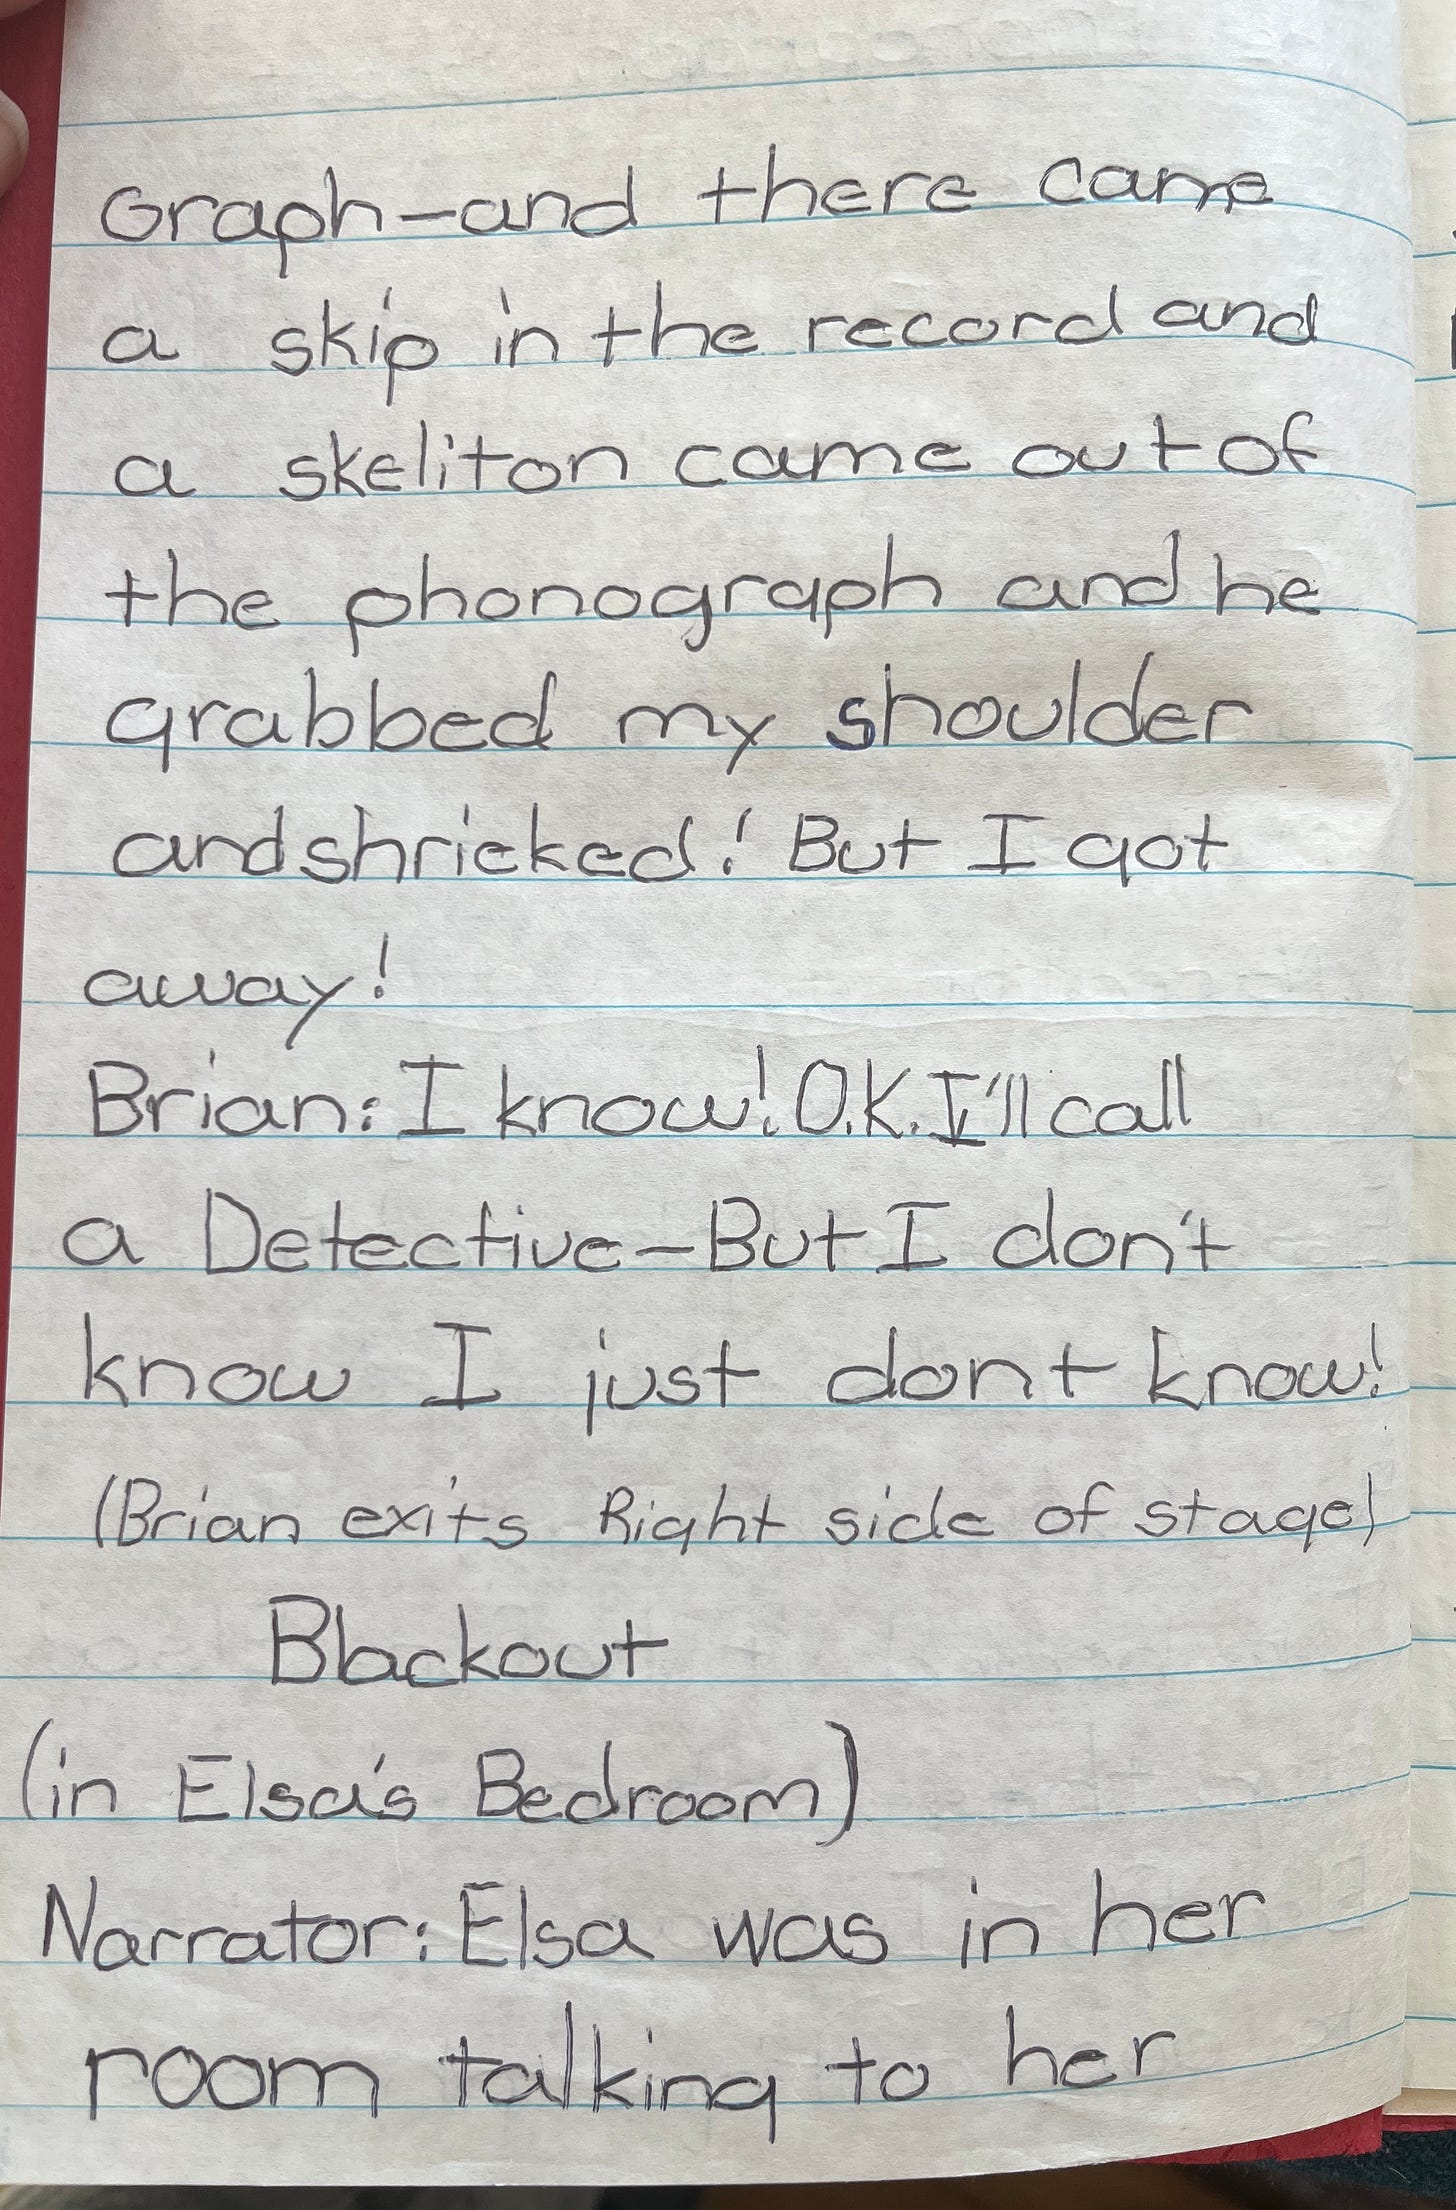 Graph—and there came
a skip in the record and
a skeliton came out of
the phonograph and he
grabbed my shoulder
and shrieked! But I got
away!
Brian: I know! O.K. I'll call
a Detective—But I don't
know I just dont know!
(Brian exits Right side of stage)
Blackout
(in Elsa's Bedroom)
Narrator: Elsa was in her
room talking to her